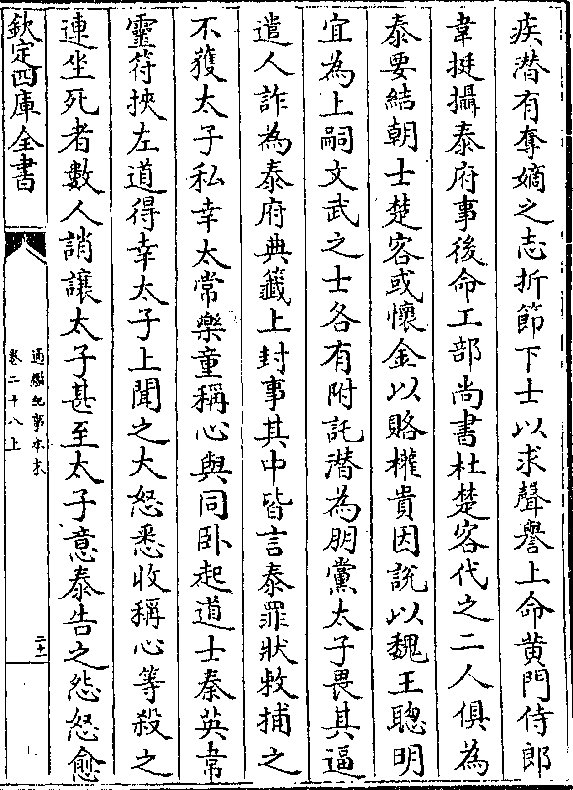 疾潜有奪嫡之志折節下士以求聲譽上命黄門侍郎
韋挺攝泰府事後命工部尚書杜楚客代之二人俱為
泰要結朝士楚客或懷金以賂權貴因説以魏王聰明
宜為上嗣文武之士各有附託潜為朋黨太子畏其逼
遣人詐為泰府典籖上封事其中皆言泰罪狀敕捕之
不獲太子私幸太常樂童稱心與同卧起道士秦英韋
靈符挾左道得幸太子上聞之大怒悉收稱心等殺之
連坐死者數人誚讓太子甚至太子意泰告之怨怒愈
欽定四庫全書
通鑑紀事本末
卷二十八上
二十